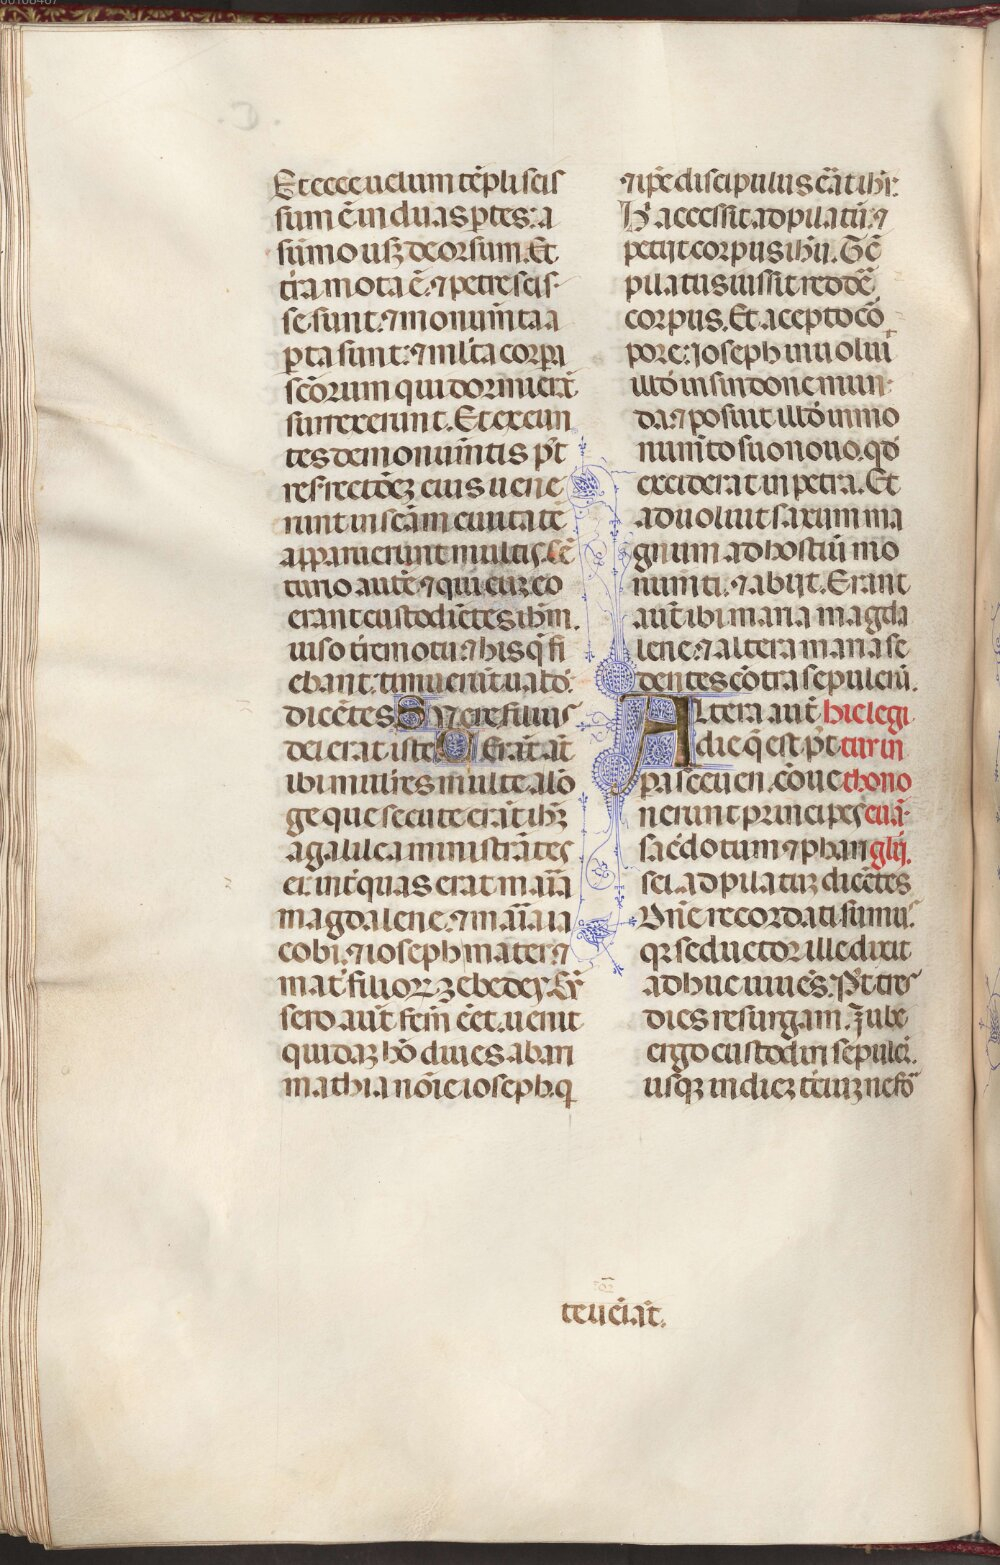 Et ecce uelum tẽpli scis
sum ẽ in duas ꝑtes: a
sũmo usqꝫ deorsum. Et
tr̃a mota ẽ. ⁊ petre scis
se sunt. ⁊ monum̃ta a
ꝑta sunt: ⁊ ml̃ta corpa
sc̃orum qui dormierãt
surrexerunt. Et exeun
tes de monum̃tis pt̾
resrectõeꝫ eius uene
runt in sc̃am ciuitatẽ
⁊ apparuerunt multis. Cẽ
turio autẽ ⁊ qui cuꝫ eo
erant custodiẽtes ihm̃.
uiso tr̃emotu ⁊ his q̃ fi
ebant: timuerũt ualð.
dicẽtes. S Vere filius
dei erat iste. C Erãt aũt
ibi mulir̃es multe a lõ
ge que secute erãt ihꝫ
a galilea ministrãtes
ei. int̾ quas erat mar̃ia
magdalene. ⁊ mar̃ia ia
cobi. ⁊ ioseph mater. ⁊
mat̾ filioꝝ zebedey. Cũ
sero aũt fcm̃ eẽt. uenit
quidaꝫ hõ diues ab ari
mathia noĩe ioseph. q
⁊ ip̃e discipulus erãt ihũ:
Hˀ accessit ad pilatũ: ⁊
petijt corpus ihũ. Tũc
pilatus iussit reddẽ
corpus. Et acepto cõ
pore: ioseph inuoluit
illð in sindone mun
da: ⁊ posuit illð in mo
num̃to suo nouo. qð
exciderat in petra. Et
aduoluit saxum ma
gnum ad hostiũ mo
num̃ti. ⁊ abijt. Erant
aũt ibi maria magda
lene. ⁊ altera maria se
dentes cõtra sepulcrũ.
Altera aũt hic legi
die q̃ est pt̾ tur in
parasceuen. cõue thono
nerunt principes euã
sac̃dotum ⁊ phari glij.
sei. ad pilatuꝫ dicẽtes
Dñe recordati sumus
qꝛ seductor ille dixit
adhuc uiuẽs. Pt̾ tres
dies resurgam. Iube
ergo custodiri sepulcr̃.
usqꝫ in dieꝫ tc̃iuꝫ ne fõ
te uẽiãt.